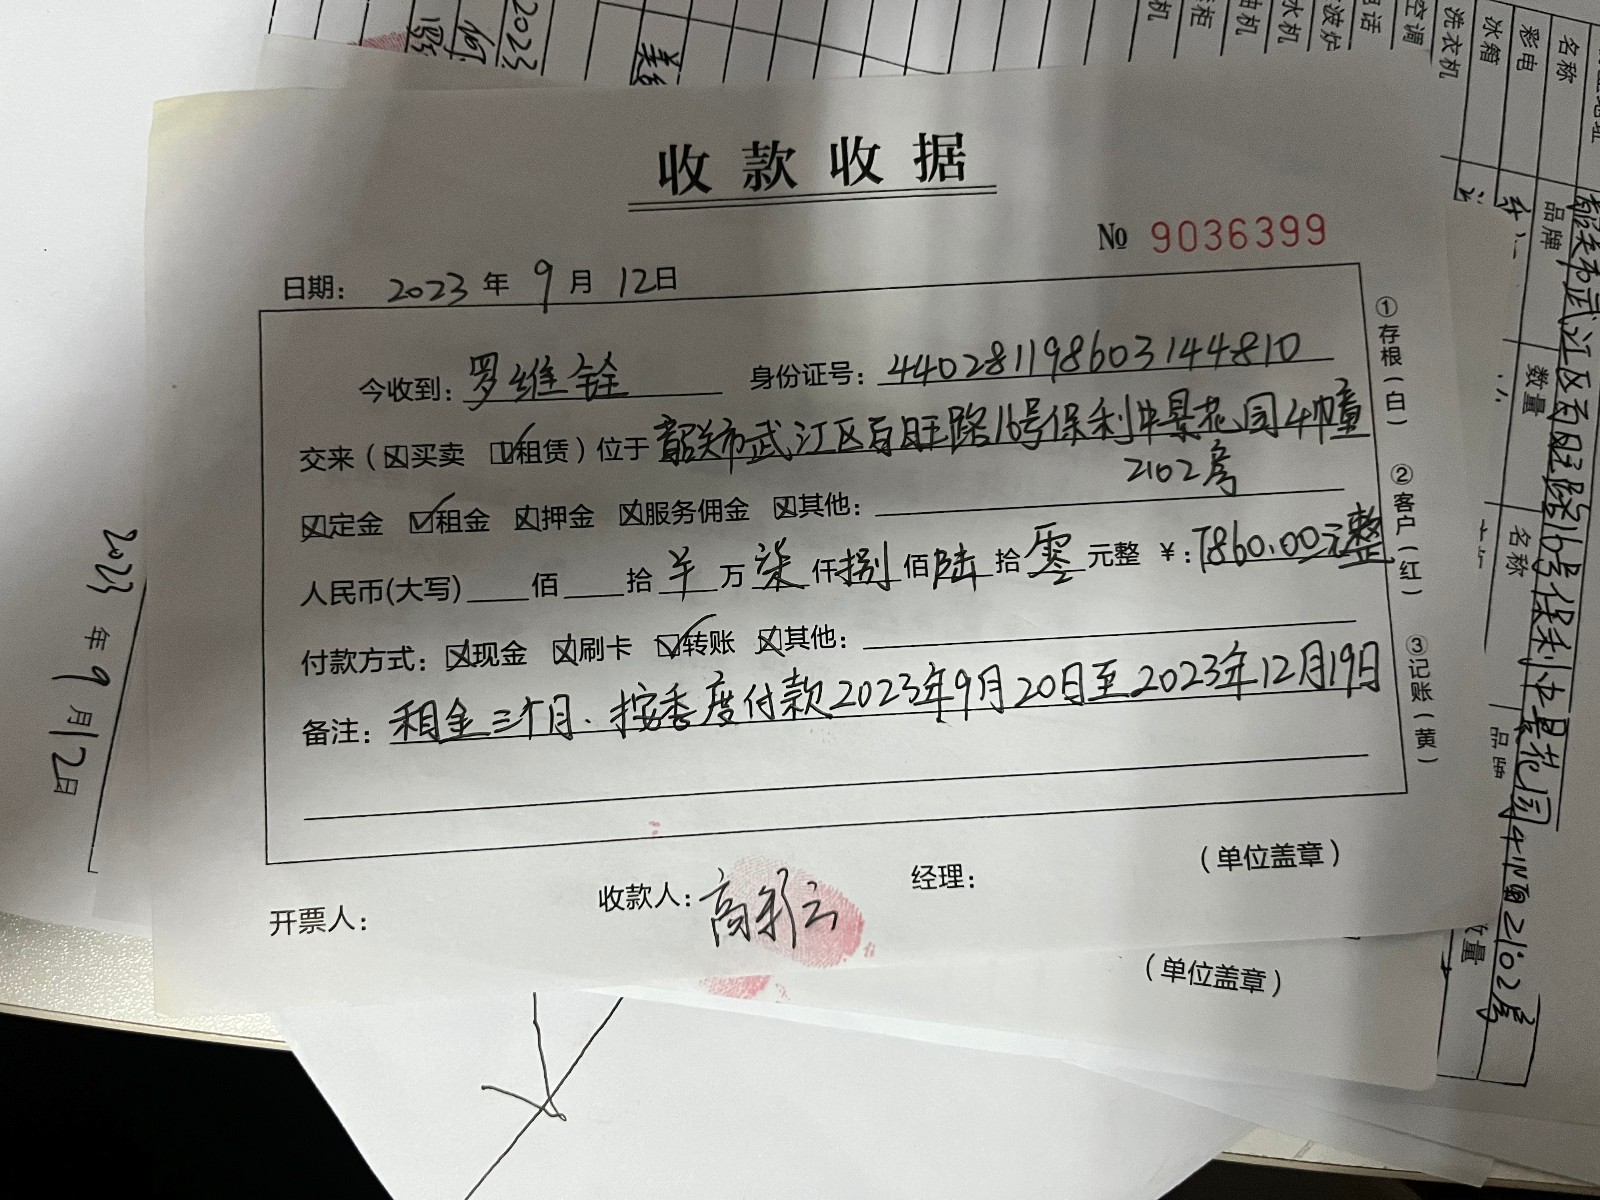 收款收据
№ 9036399
日期： 2023 年 9 月 12日
今收到：罗维铨 身份证号：440281198603144810
交来（☒买卖 ☑租赁）位于韶关市武江区百旺路16号保利中景花园4幢
2102房
☒定金 ☑租金 ☒押金 ☒服务佣金 ☒其他：
人民币(大写)____佰____拾羊万柒仟捌佰陆拾零元整 ￥：7860.00元整
付款方式：☒现金 ☒刷卡 ☑转账 ☒其他：
备注：租金三个月、按季度付款2023年9月20日至2023年12月19日
开票人： 收款人：高彩云 经理： （单位盖章）
①存根（白） ②客户（红） ③记账（黄）
（单位盖章）
2023 年 9 月12日
2023
名称 品牌 数量 名称 品牌 数量
彩电
冰箱
洗衣机
空调
电话
韶关市武江区百旺路16号保利中景花园4幢2102房